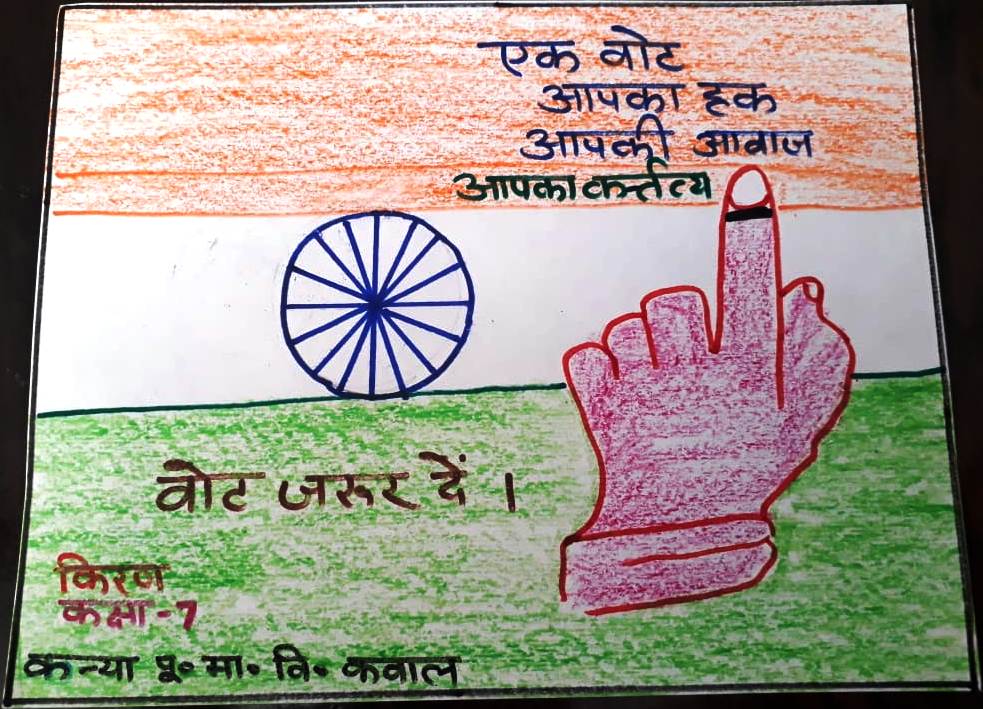 एक वोट
आपका हक
आपकी आवाज
आपका कर्त्तव्य
वोट जरूर दें ।
किरण
कक्षा-7
कन्या पू॰ मा॰ वि॰ कवाल